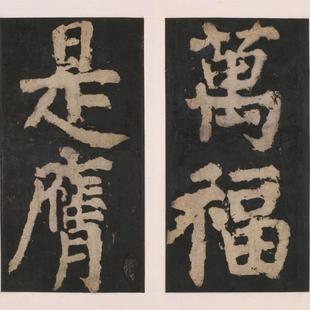 萬福
是膺